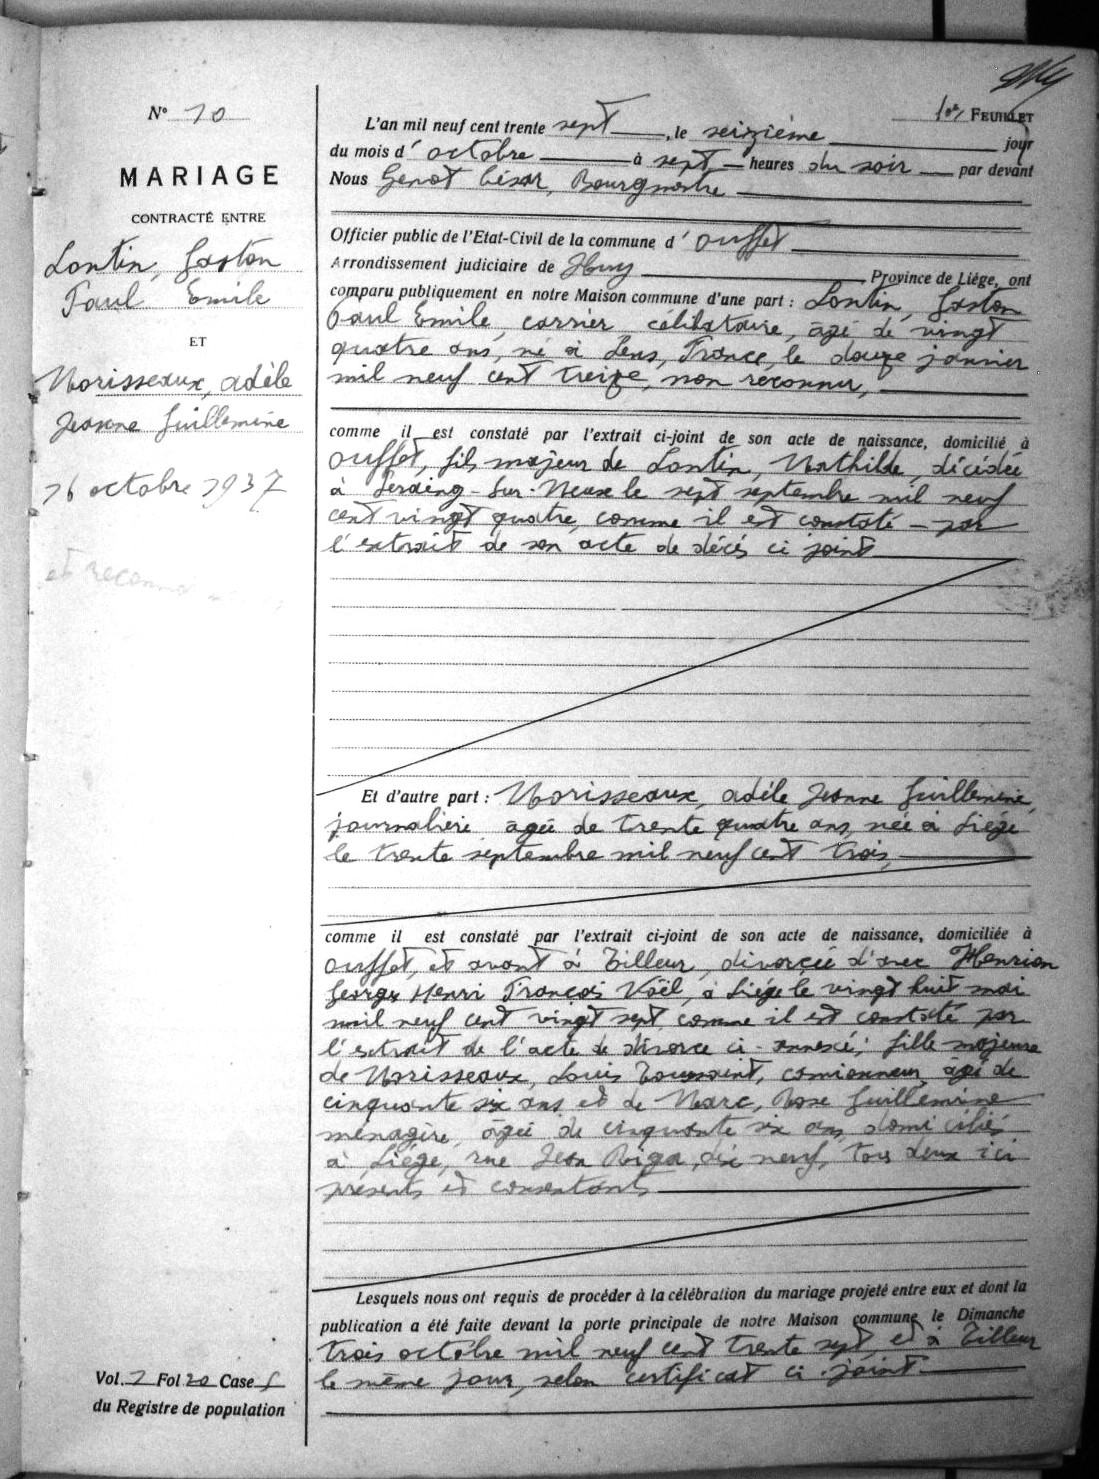 N° 10
MARIAGE
CONTRACTÉ ENTRE
Lontin, Gaston
Paul Emile
ET
Morisseaux, Adèle
Jeanne Guillemine
16 octobre 1937
et reconnai
Vol. 2 Fol 20 Case
du Registre de population
1er FEUILLET
L'an mil neuf cent trente sept, le seizième jour
du mois d'octobre à sept heures du soir par devant
Nous Genot César, Bourgmestre
Officier public de l'Etat-Civil de la commune d'Ouffet
Arrondissement judiciaire de Huy Province de Liége, ont
comparu publiquement en notre Maison commune d'une part : Lontin, Gaston
Paul Emile, carrier célibataire, âgé de vingt
quatre ans, né à Lens, France, le douze janvier
mil neuf cent treize, non reconnu,
comme il est constaté par l'extrait ci-joint de son acte de naissance, domicilié à
Ouffet, fils majeur de Lontin, Mathilde, décédée
à Seraing-Sur-Meuse le sept septembre mil neuf
cent vingt quatre, comme il est constaté par
l'extrait de son acte de décés ci joint
Et d'autre part : Morisseaux, Adèle Jeanne Guillemine,
journalière âgée de trente quatre ans, née à Liége
le trente septembre mil neuf cent trois,
comme il est constaté par l'extrait ci-joint de son acte de naissance, domiciliée à
Ouffet, et avant à Tilleur, divorcée d'avec Henrion
Georges Henri François Noël, à Liége le vingt huit mai
mil neuf cent vingt sept, comme il est constaté par
l'extrait de l'acte de divorce ci-annexé; fille majeure
de Morisseaux, Louis Toussaint, camionneur, âgé de
cinquante six ans et de Marc, Rose Guillemine
ménagère, âgée de cinquante six ans, domiciliés
à Liége, rue Jean Riga, dix neuf, tous deux ici
présents et consentants
Lesquels nous ont requis de procéder à la célébration du mariage projeté entre eux et dont la
publication a été faite devant la porte principale de notre Maison commune le Dimanche
trois octobre mil neuf cent trente sept, et à Tilleur
le même jour, selon certificat ci-joint.